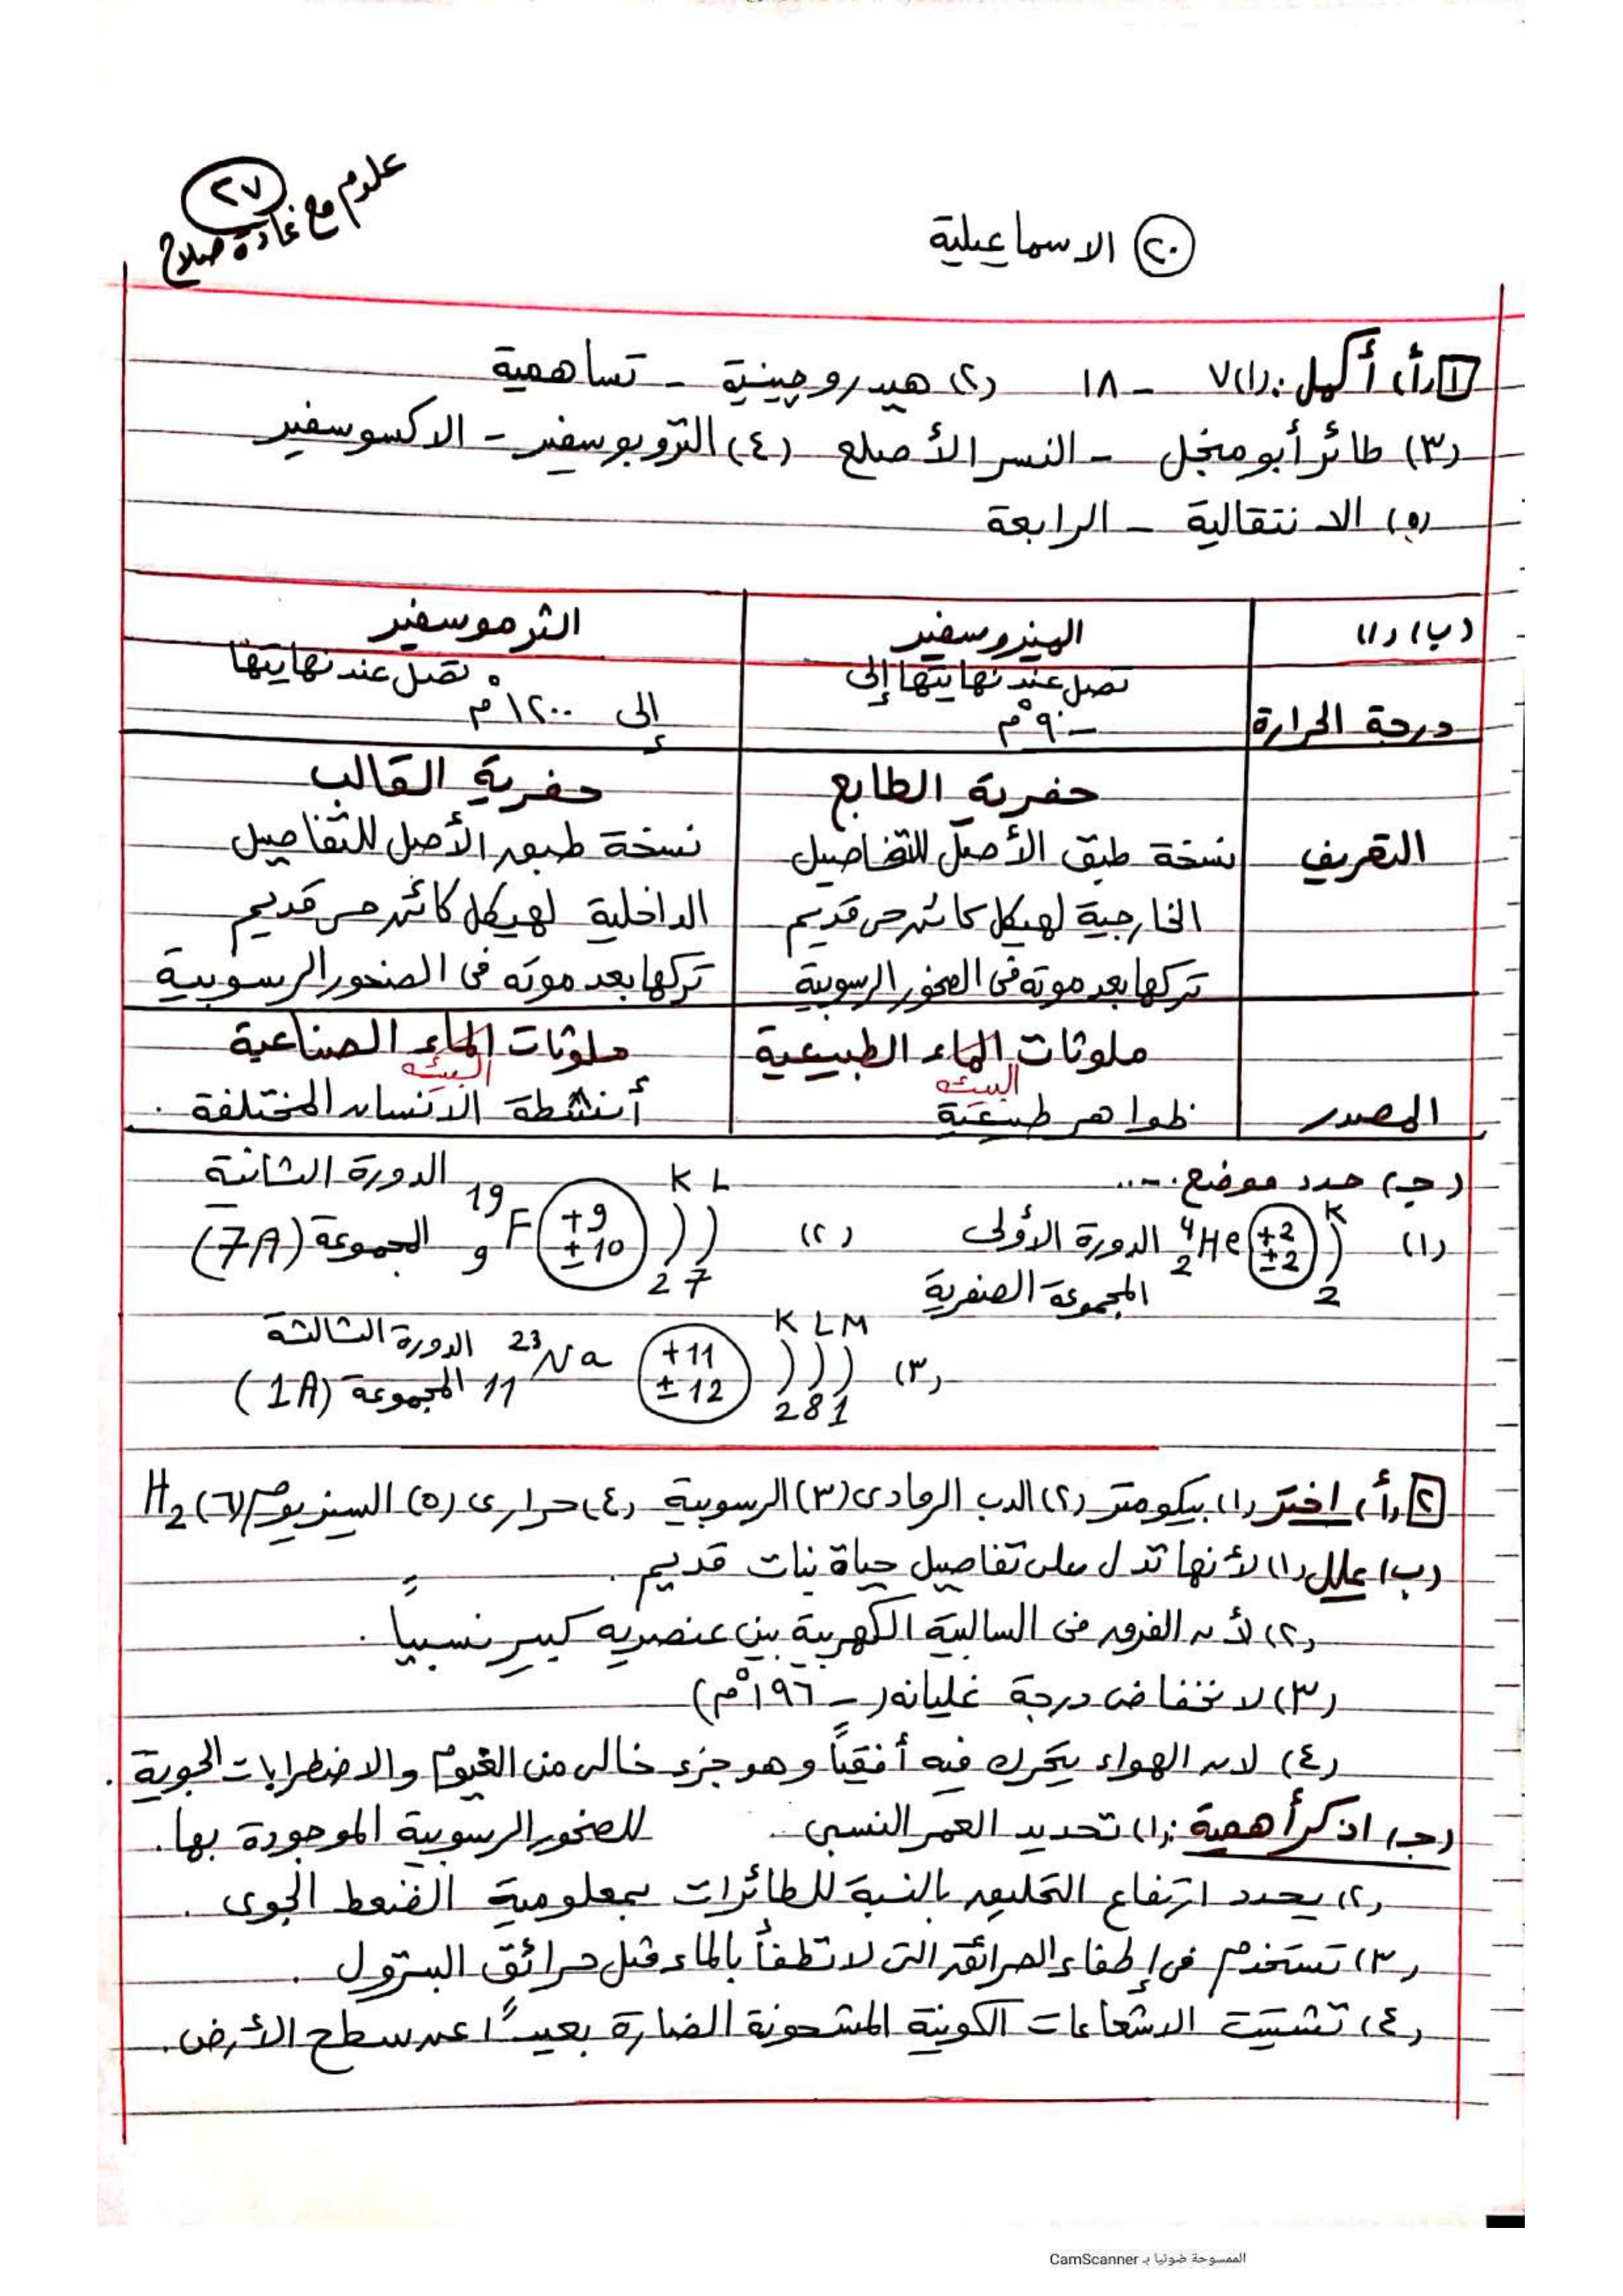 علوم مع غادة صلاح
٢٧
٢٠ الاسماعيلية
١ (أ) أكمل: (١) ٧ - ١٨ (٢) هيدروجينية - تساهمية
(٣) طائر أبو منجل - النسر الأصلع (٤) التروبوسفير - الاكسوسفير
(٥) الانتقالية - الرابعة
(ب) (١) الميزوسفير الثرموسفير
درجة الحرارة تصل عند نهايتها إلى -٩٠°م تصل عند نهايتها إلى ١٢٠٠°م
حفرية الطابع حفرية القالب
التعريف نسخة طبق الأصل للتفاصيل نسخة طبق الأصل للتفاصيل
الخارجية لهيكل كائن حى قديم الداخلية لهيكل كائن حى قديم
تركها بعد موته فى الصخور الرسوبية تركها بعد موته فى الصخور الرسوبية
ملوثات الماء الطبيعية ملوثات الماء الصناعية
البيئه البيئه
المصدر ظواهر طبيعية أنشطة الانسان المختلفة.
(جـ) حدد موضع.....
(١) 4 2 He +2 ±2 K 2 الدورة الأولى
المجموعة الصفرية
(٢) 19 9 F +9 ±10 K L 2 7 الدورة الثانية
و المجموعة (7A)
(٣) 23 11 Na +11 ±12 K L M 2 8 1 الدورة الثالثة
المجموعة (1A)
٢ (أ) اختر (١) بيكومتر (٢) الدب الرمادى (٣) الرسوبية (٤) حرارى (٥) السيزيوم (٦) H2
(ب) علل (١) لأنها تدل على تفاصيل حياة نبات قديم.
(٢) لأن الفرق فى السالبية الكهربية بين عنصريه كبير نسبياً.
(٣) لانخفاض درجة غليانه (-١٩٦°م)
(٤) لان الهواء يتحرك فيه أفقياً وهو جزء خالى من الغيوم والاضطرابات الجوية.
(جـ) اذكر أهمية: (١) تحديد العمر النسبى للصخور الرسوبية الموجودة بها.
(٢) يحدد ارتفاع التحليق بالنسبة للطائرات بمعلومية الضغط الجوى.
(٣) تستخدم فى إطفاء الحرائق التى لا تطفأ بالماء مثل حرائق البترول.
(٤) تشتيت الاشعاعات الكونية المشحونة الضارة بعيداً عن سطح الأرض.
الممسوحة ضوئيا بـ CamScanner